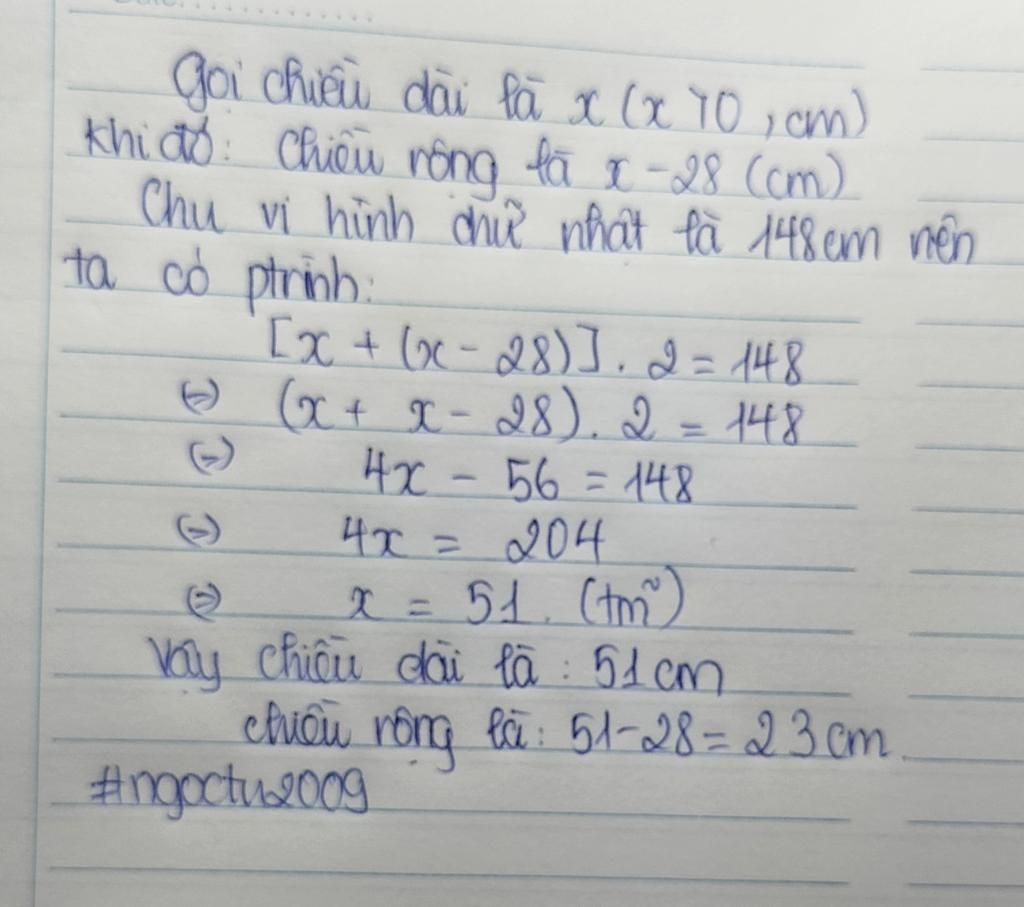 Gọi chiều dài là x (x > 0, cm)
Khi đó: Chiều rộng là x - 28 (cm)
Chu vi hình chữ nhật là 148cm nên
ta có ptrình:
[x + (x - 28)] . 2 = 148
(=) (x + x - 28) . 2 = 148
(=) 4x - 56 = 148
(=) 4x = 204
(=) x = 51. (tm~)
Vậy chiều dài là : 51 cm
chiều rộng là: 51 - 28 = 23 cm.
#ngoctu2009